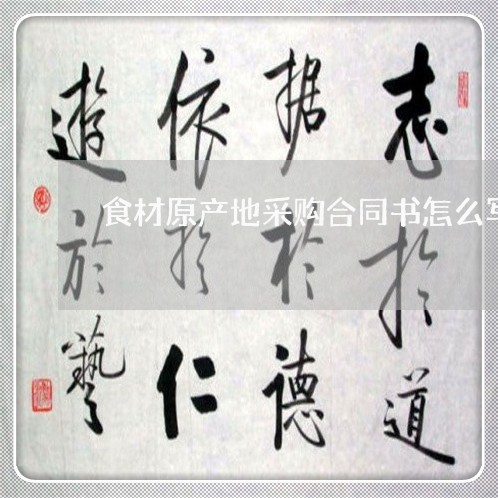 志於道
据於德
依於仁
遊於藝
食材原产地采购合同书怎么